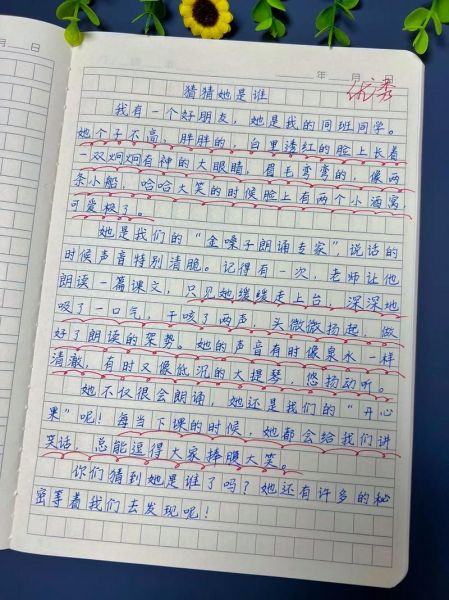 月 日
年 月 日
优秀
猜猜她是谁
我有一个好朋友，她是我的同班同学。
她个子不高，胖胖的，白里透红的脸上长着
一双炯炯有神的大眼睛，眉毛弯弯的，像两
条小船，哈哈大笑的时候脸上有两个小酒窝
可爱极了。
她是我们的“金嗓子朗诵专家”，说话的
时候声音特别清脆。记得有一次，老师让他
朗读一篇课文，只见她缓缓走上台，深深地
吸了一口气，干咳了两声，头微微扬起，做
好了朗读的架势。她的声音有时像泉水一样
清澈，有时又像低沉的大提琴，悠扬动听。
她不仅很会朗诵，她还是我们的“开心
果”呢！每当下课的时候，她都会给我们讲
笑话，总能逗得大家捧腹大笑。
你们猜到她是谁了吗？她还有许多的秘
密等着我们去发现呢！